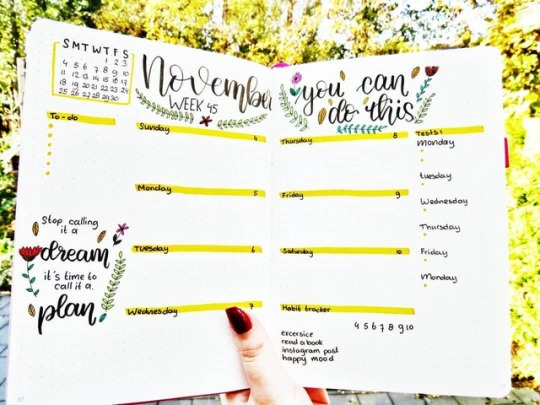 S M T W T F S
1 2 3
4 5 6 7 8 9 10
11 12 13 14 15 16 17
18 19 20 21 22 23 24
25 26 27 28 29 30
November
WEEK 45
To-do
Sunday 4
Monday 5
Tuesday 6
Wednesday 7
Stop calling
it a
dream
it's time to
call it a
plan
you can
do this
Thursday 8
Friday 9
Saturday 10
Habit tracker
4 5 6 7 8 9 10
excersice
read a book
instagram post
happy mood
Tests:
Monday
tuesday
Wednesday
Thursday
Friday
Monday